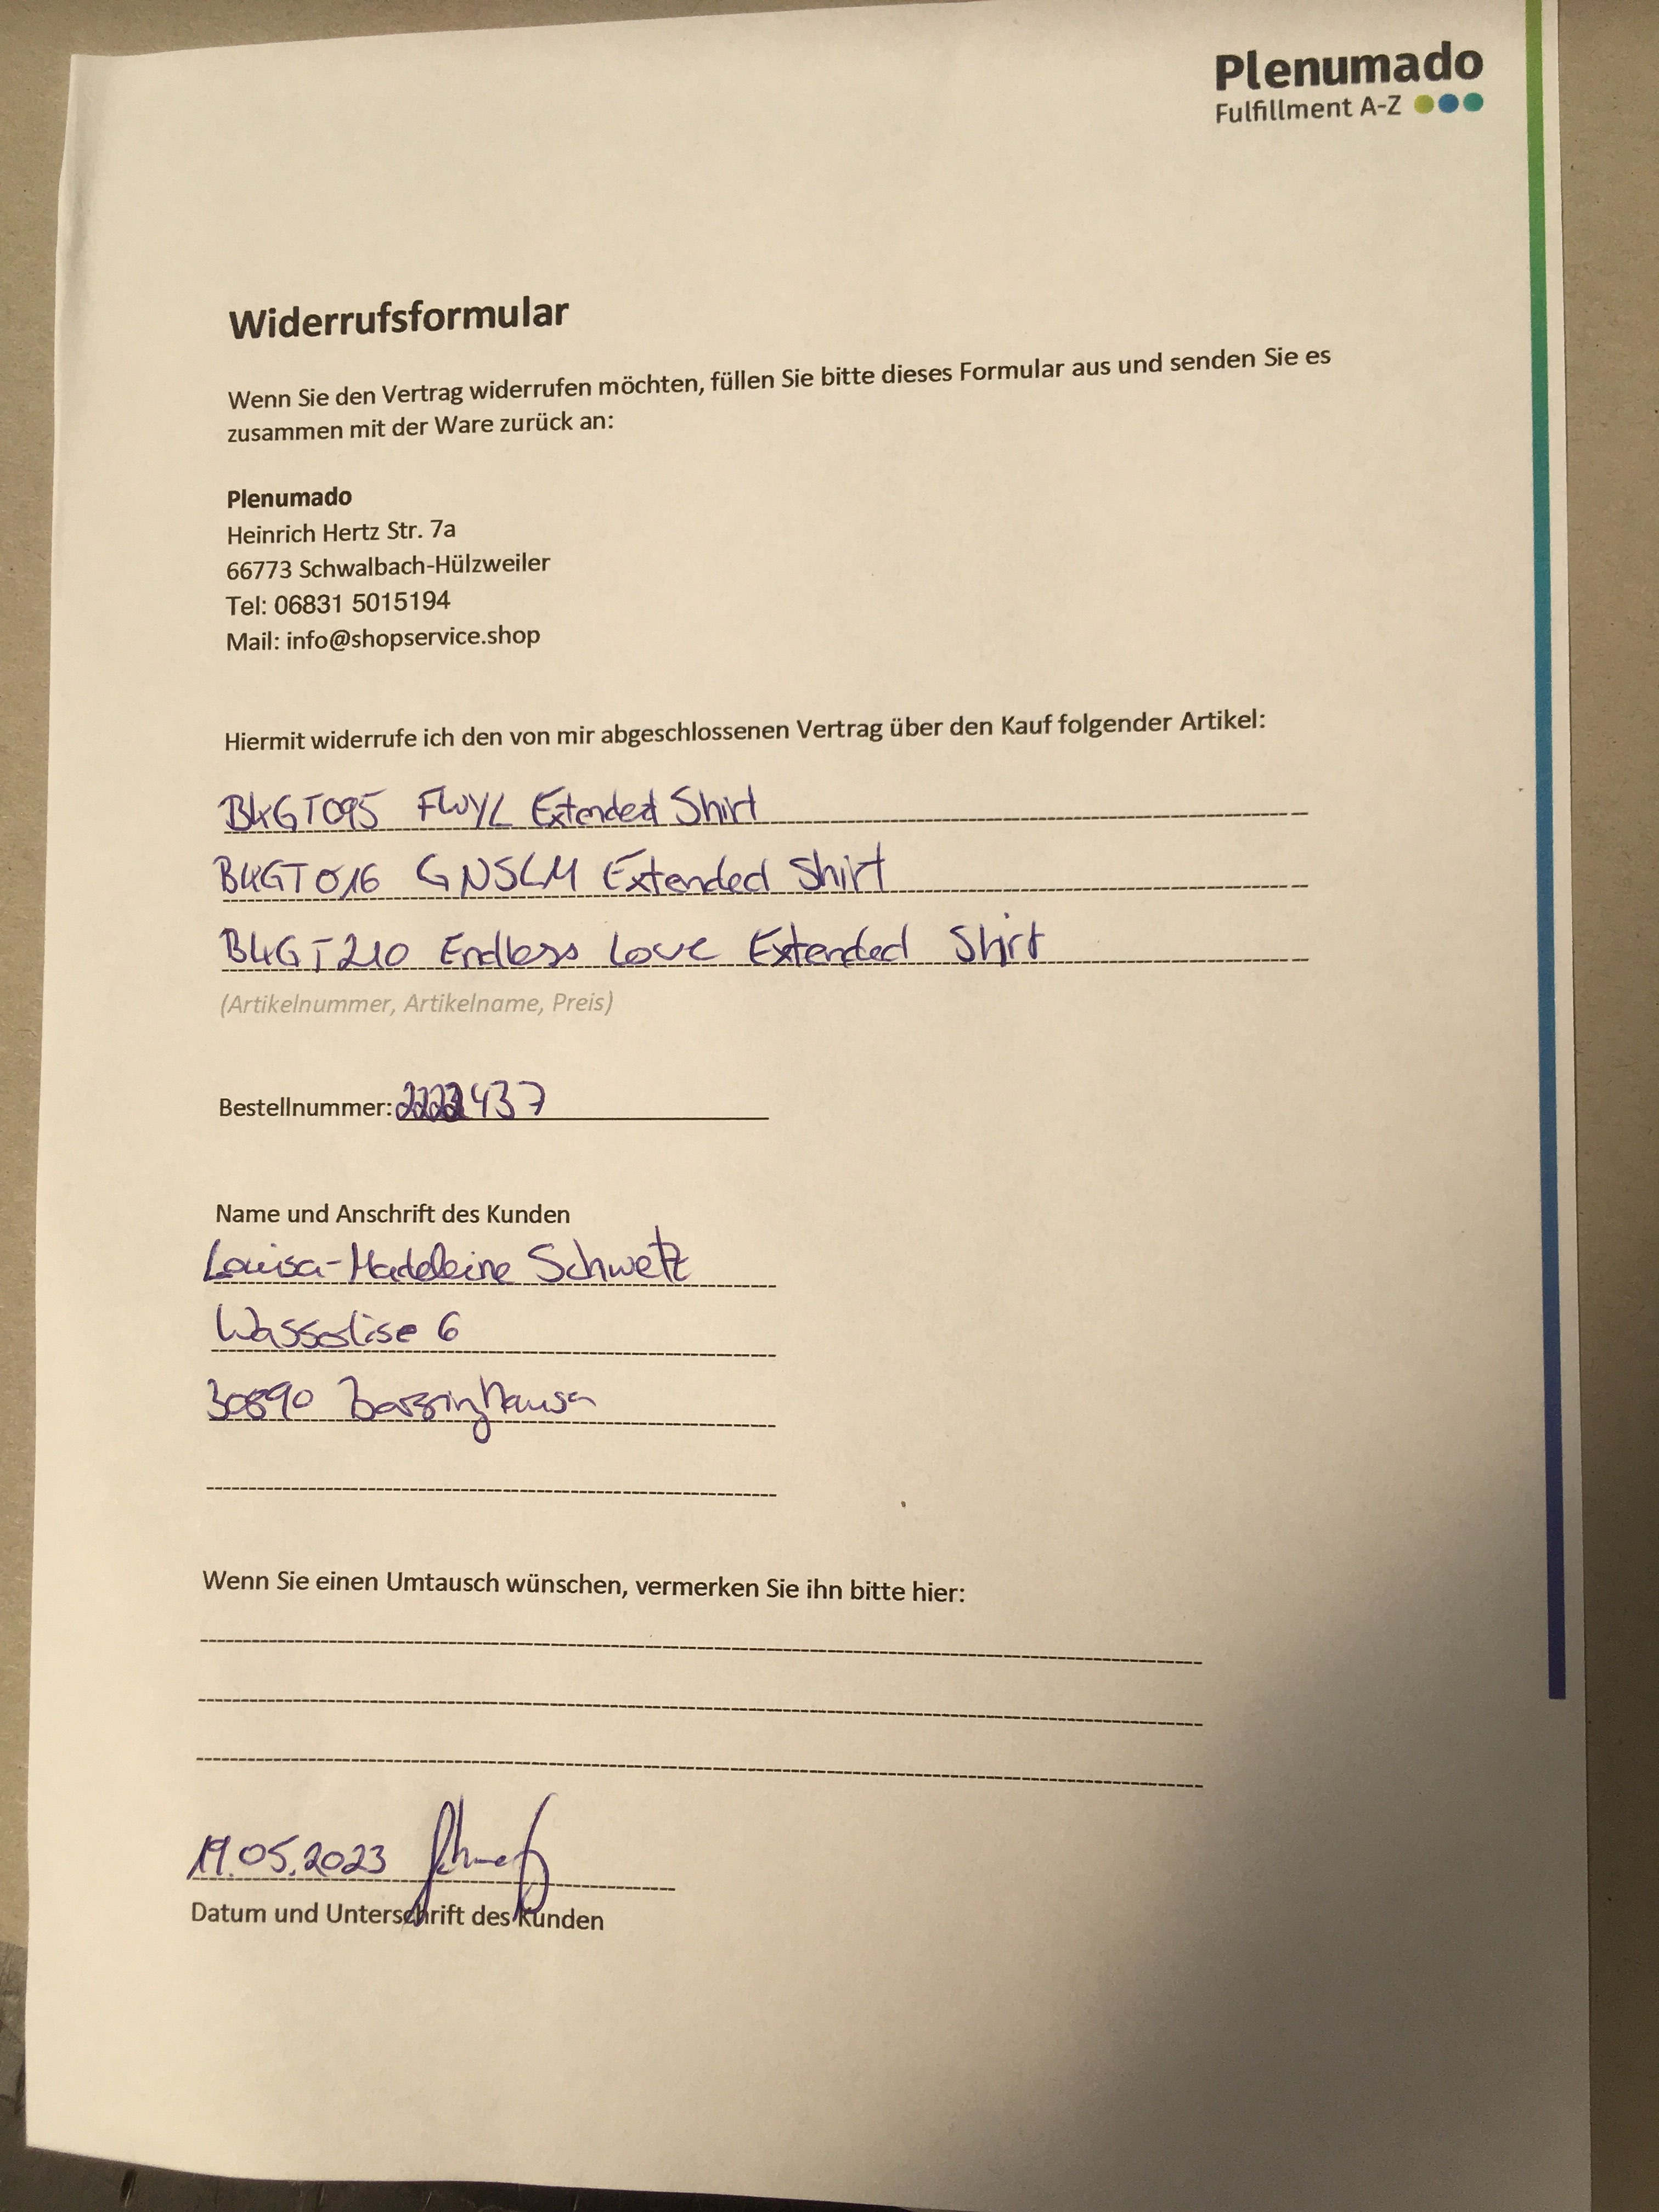 Plenumado
Fulfillment A-Z
Widerrufsformular
Wenn Sie den Vertrag widerrufen möchten, füllen Sie bitte dieses Formular aus und senden Sie es
zusammen mit der Ware zurück an:
Plenumado
Heinrich Hertz Str. 7a
66773 Schwalbach-Hülzweiler
Tel: 06831 5015194
Mail: info@shopservice.shop
Hiermit widerrufe ich den von mir abgeschlossenen Vertrag über den Kauf folgender Artikel:
B4GT095 FWYL Extended Shirt
B4GT016 GNSLM Extended Shirt
B4GT210 Endless Love Extended Shirt
(Artikelnummer, Artikelname, Preis)
Bestellnummer:
Name und Anschrift des Kunden
Louisa-Madeleine Schwetz
6
30890 Barsinghausen
Wenn Sie einen Umtausch wünschen, vermerken Sie ihn bitte hier:
19.05.2023
Datum und Unterschrift des Kunden